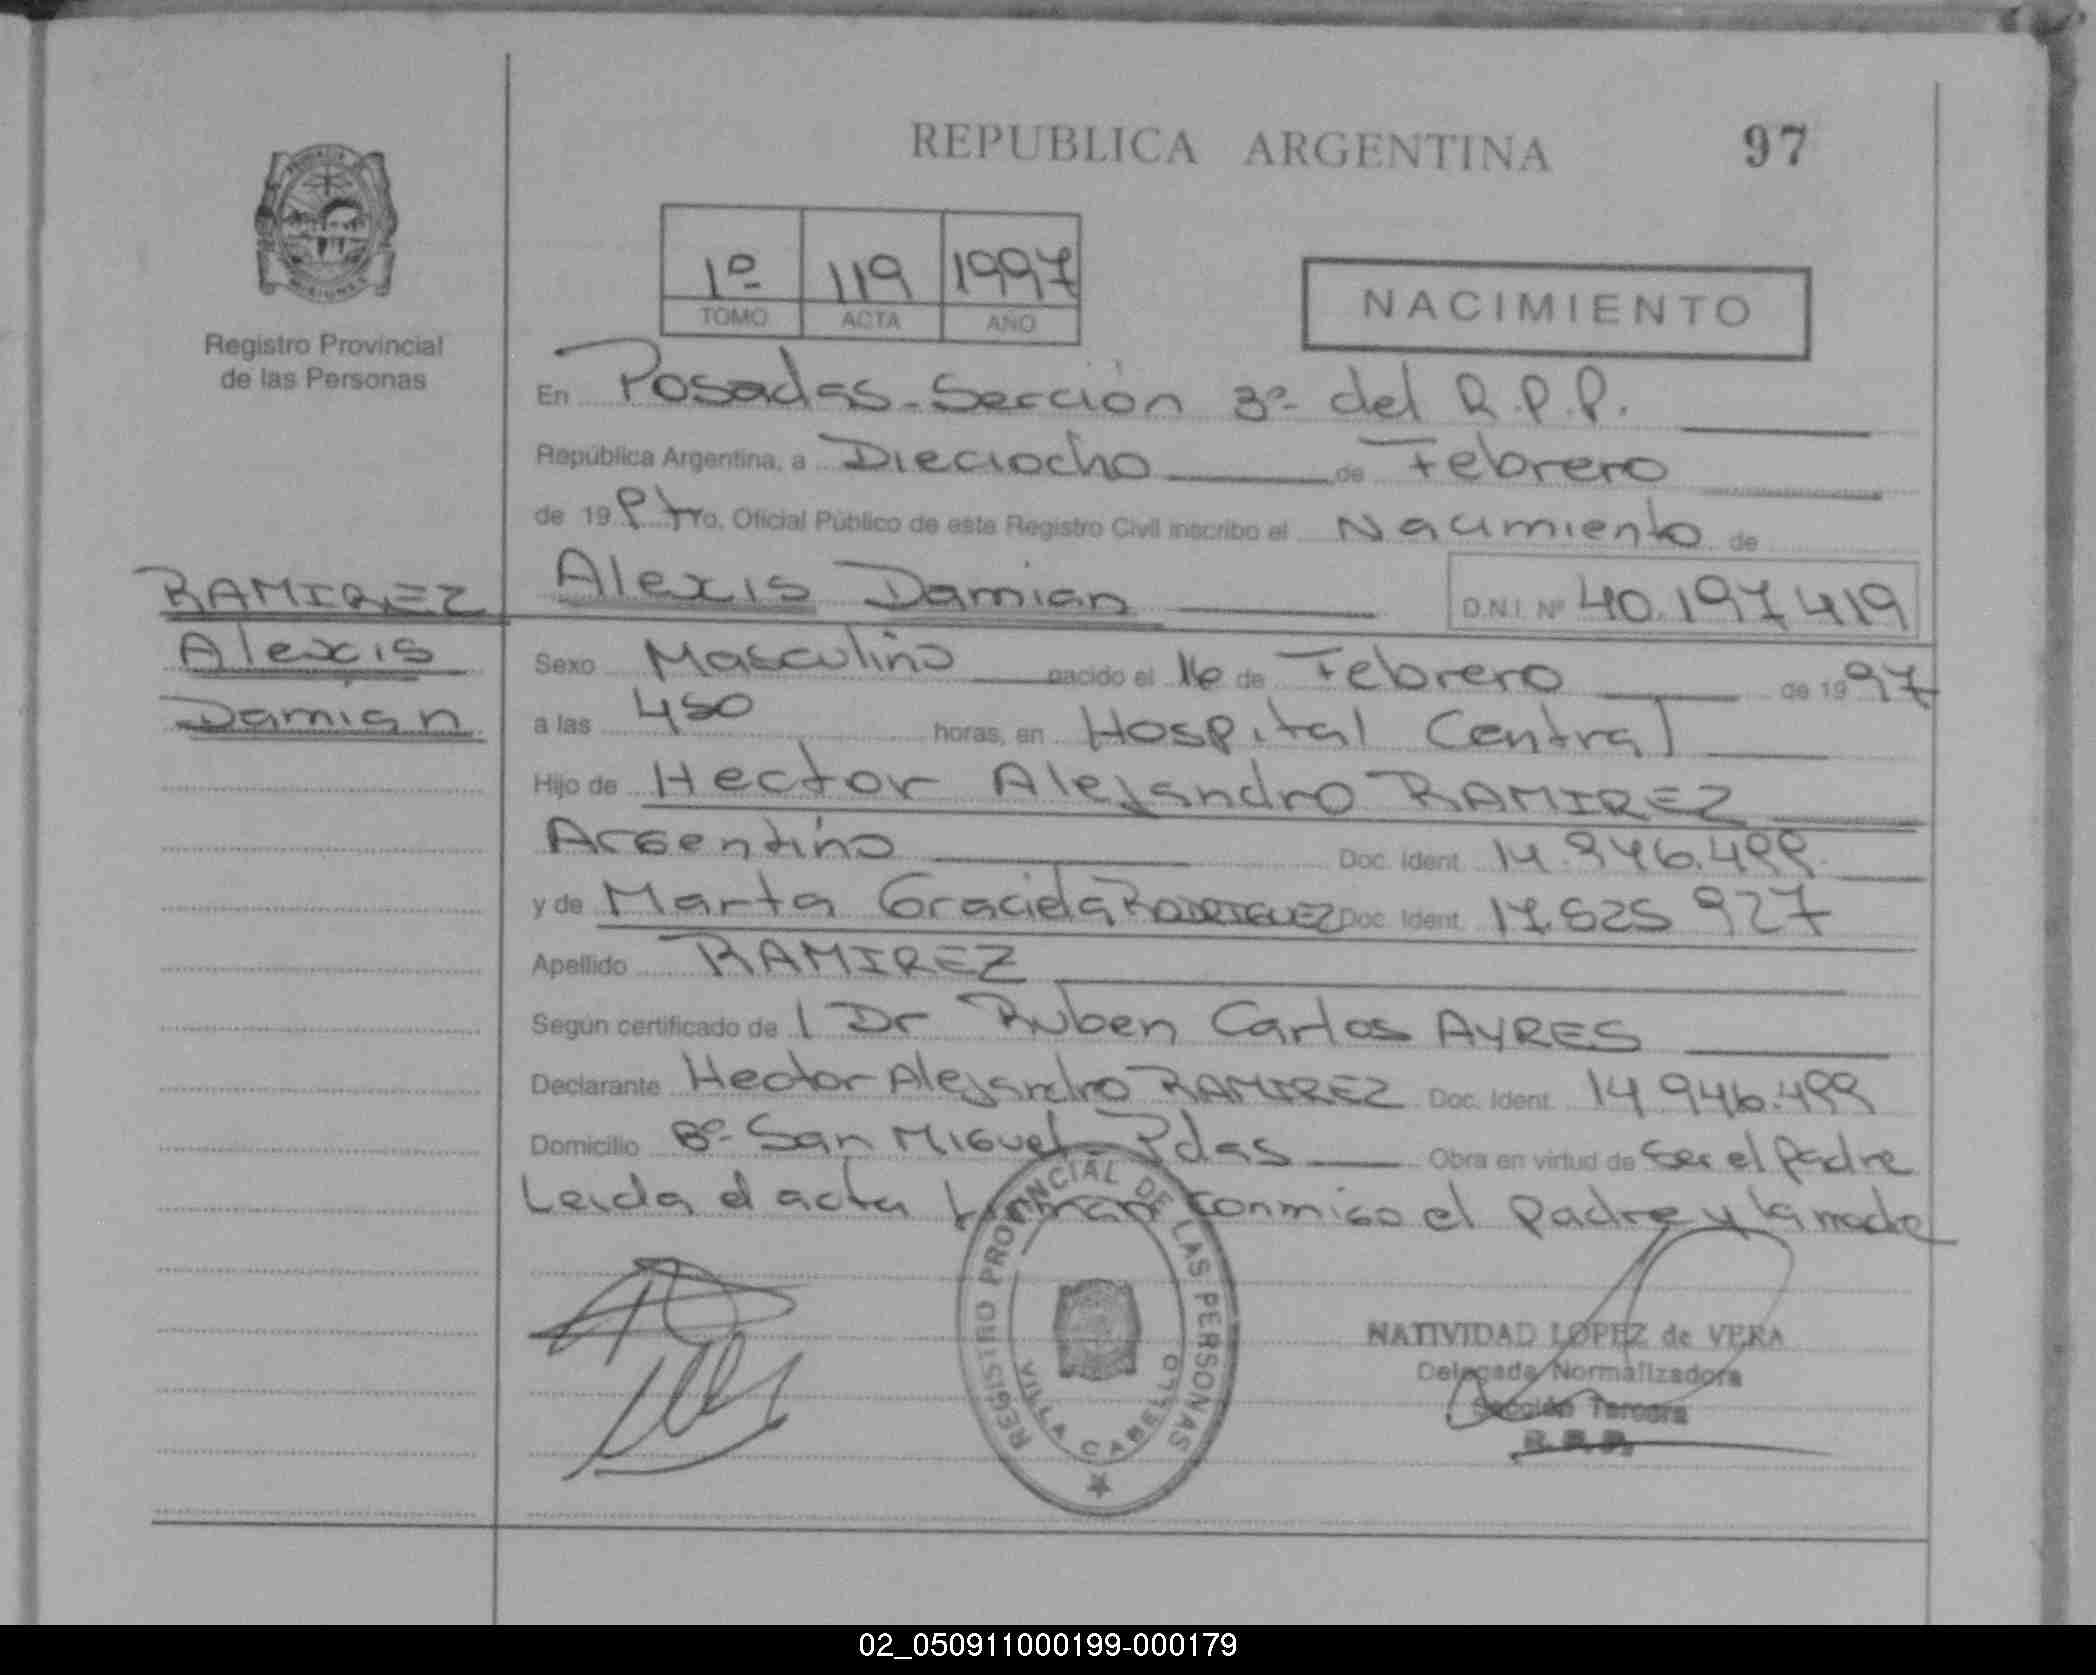 REPUBLICA ARGENTINA 97
PROVINCIA DE
MISIONES
Registro Provincial
de las Personas
1º 119 1997
TOMO ACTA AÑO
NACIMIENTO
En Posadas-Sección 3º del R.P.P.
República Argentina, a Dieciocho de Febrero
de 1997 Yo, Oficial Público de este Registro Civil inscribo el Nacimiento de
Alexis Damian D.N.I. Nº 40.197419
RAMIREZ
Alexis
Damian
Sexo Masculino nacido el 16 de Febrero de 1997
a las 450 horas, en Hospital Central
Hijo de Hector Alejandro RAMIREZ
Argentino Doc. Ident. 14.946.499
y de Marta Graciela RODRIGUEZ Doc. Ident. 17.825 927
Apellido RAMIREZ
Según certificado de l Dr Ruben Carlos AYRES
Declarante Hector Alejandro RAMIREZ Doc. Ident. 14.946.499
Domicilio Bº San Miguel-Pdas Obra en virtud de ser el padre
Leida el acta firman conmigo el padre y la madre
REGISTRO PROVINCIAL DE LAS PERSONAS
VILLA CABELLO
NATIVIDAD LOPEZ de VERA
Delegada Normalizadora
Sección Tercera
R. P. P.
02_050911000199-000179